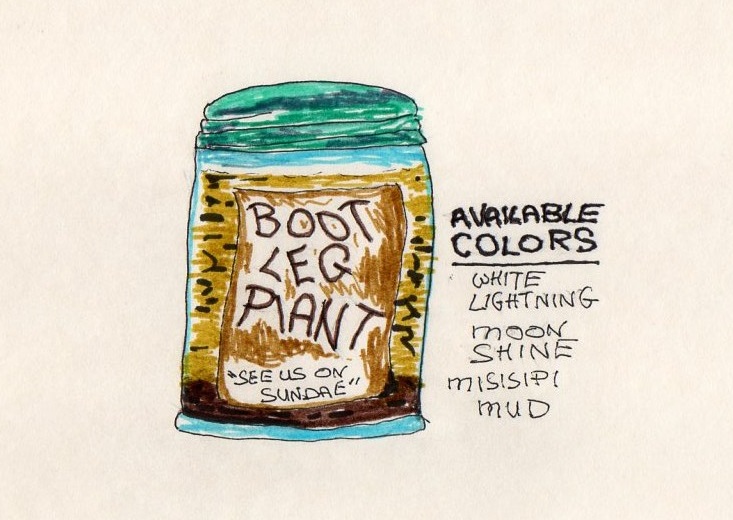 BOOT
LEG
PIANT
"SEE US ON
SUNDAE"
AVAILABLE
COLORS
WHITE
LIGHTNING
MOON
SHINE
MISISIPI
MUD